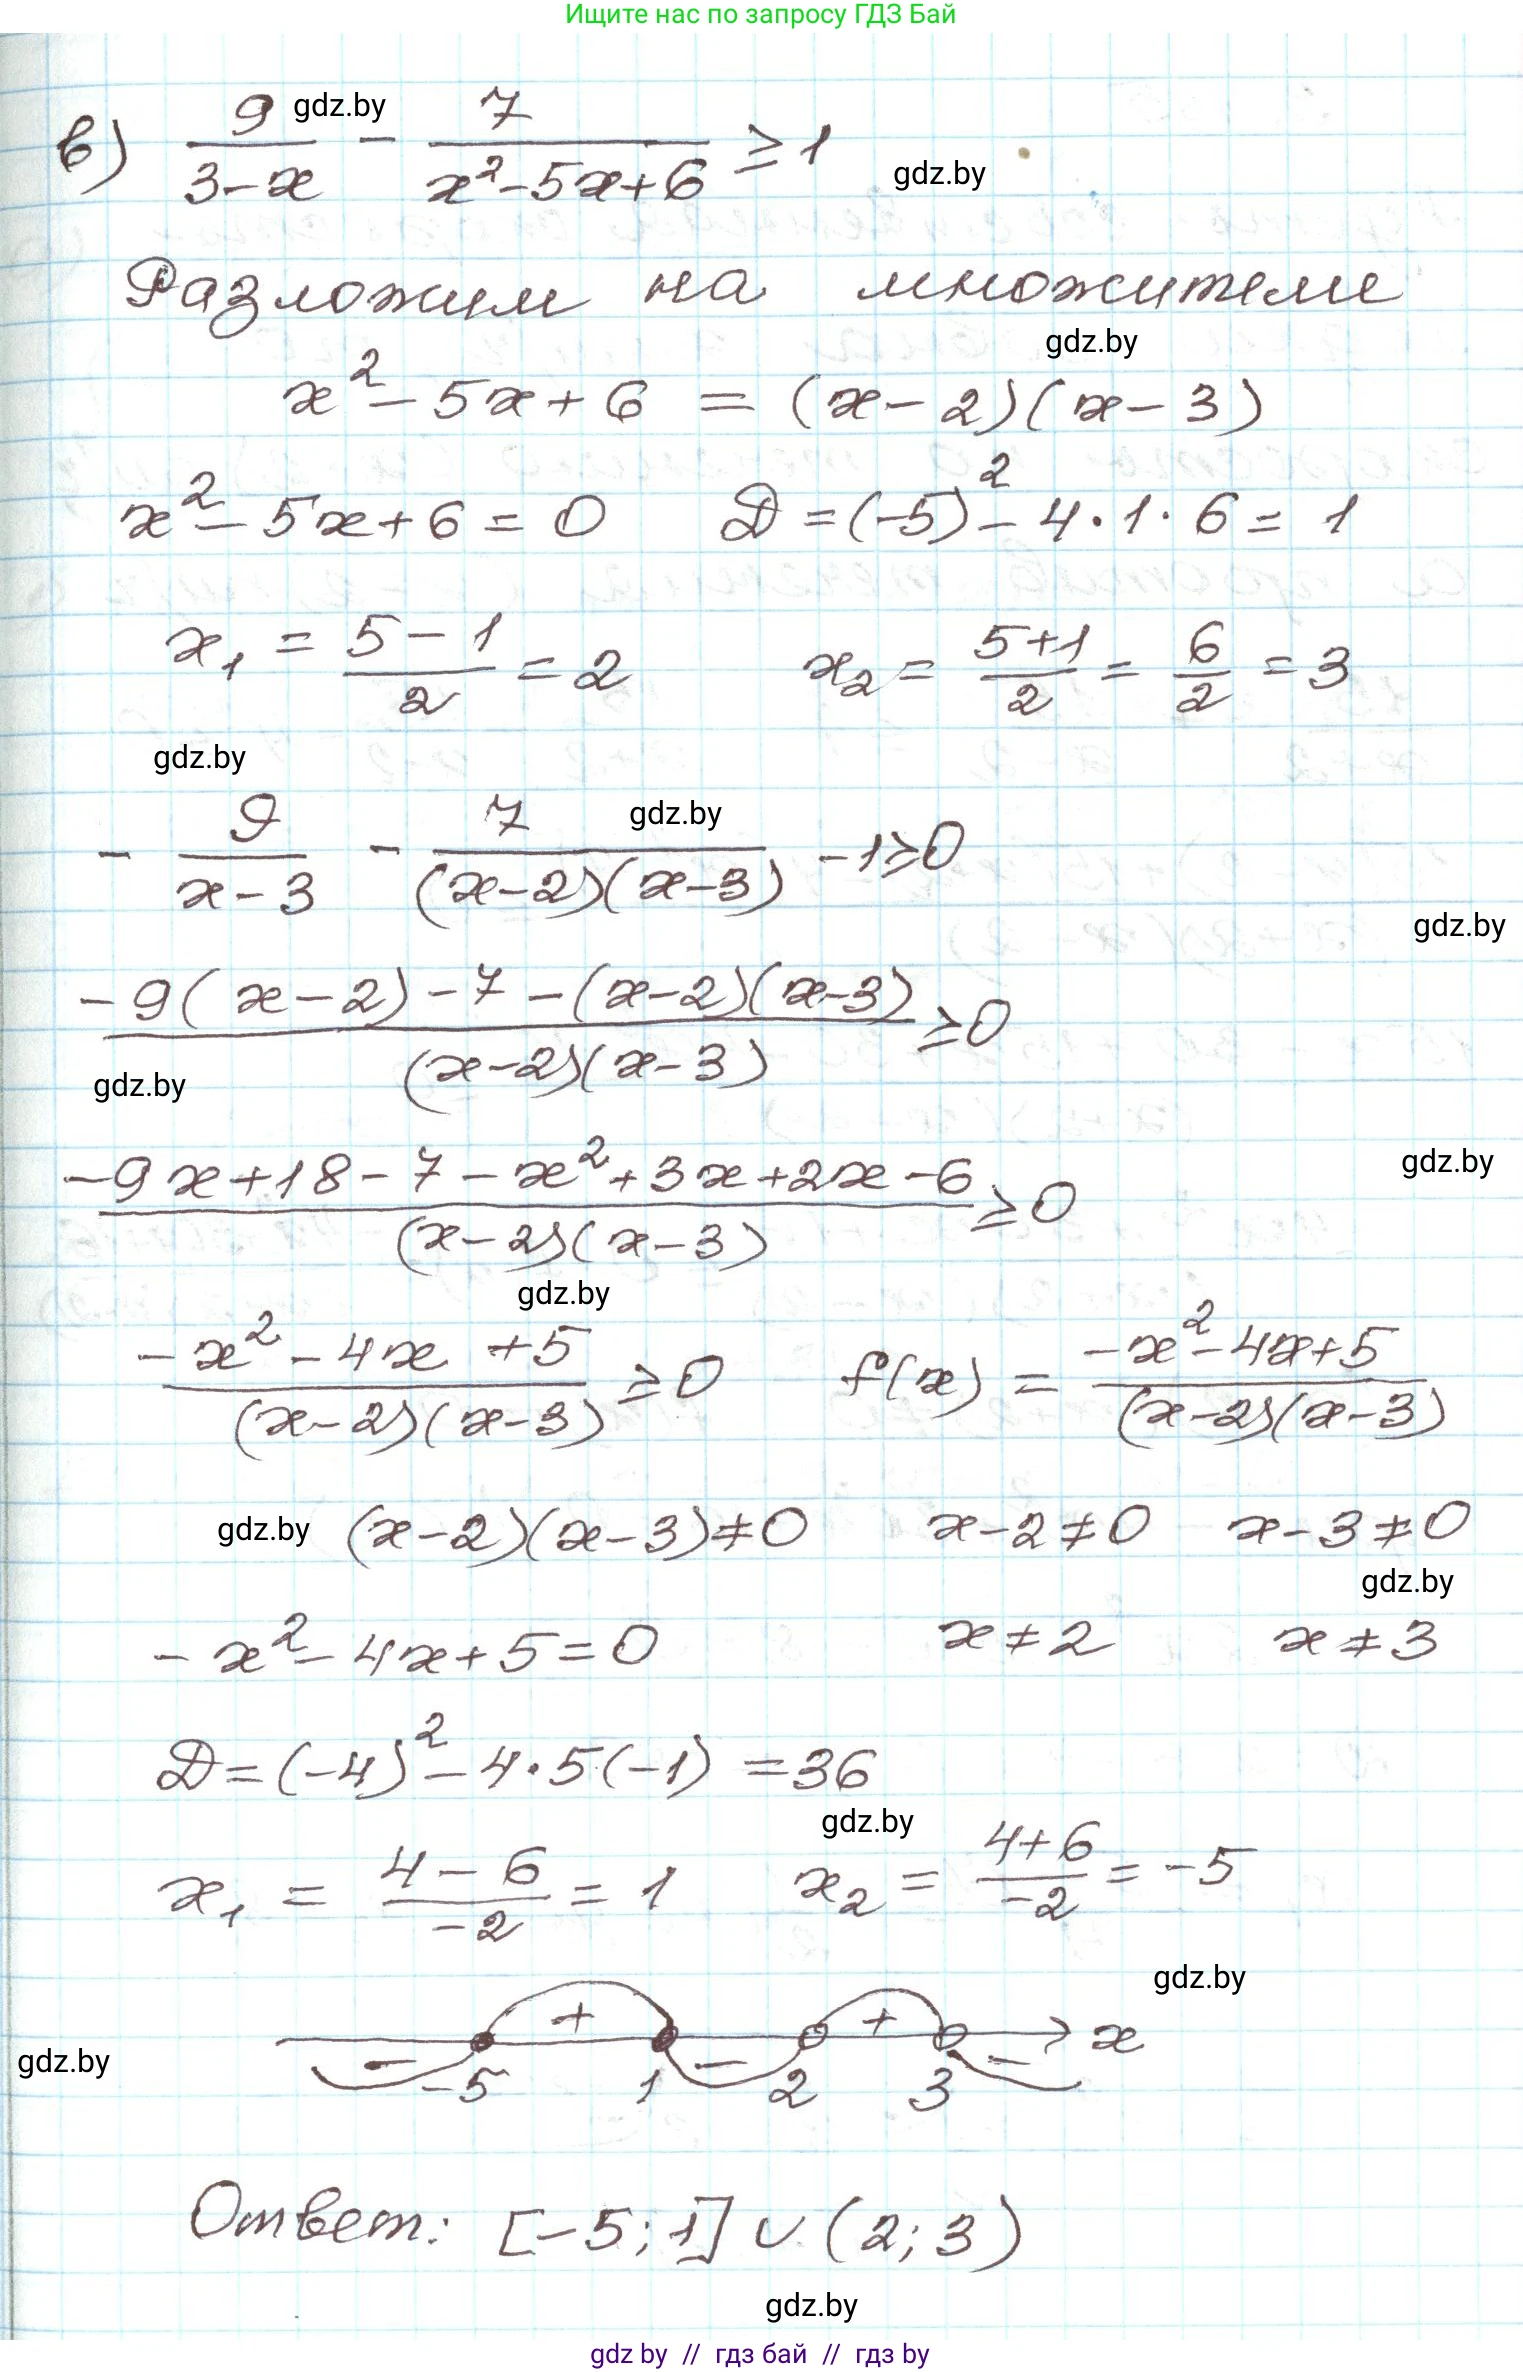 Ищите нас по запросу ГДЗ Бай
в) 9/(3-x) - 7/(x²-5x+6) ≥ 1
gdz.by
gdz.by
Разложим на множители
gdz.by
x²-5x+6 = (x-2)(x-3)
x²-5x+6=0 D=(-5)²-4·1·6=1
x₁ = (5-1)/2 = 2 x₂ = (5+1)/2 = 6/2 = 3
gdz.by
gdz.by
- 9/(x-3) - 7/((x-2)(x-3)) -1≥0
gdz.by
(-9(x-2)-7-(x-2)(x-3))/((x-2)(x-3)) ≥0
gdz.by
gdz.by
(-9x+18-7-x²+3x+2x-6)/((x-2)(x-3)) ≥0
gdz.by
(-x²-4x+5)/((x-2)(x-3)) ≥0 f(x) = (-x²-4x+5)/((x-2)(x-3))
gdz.by (x-2)(x-3)≠0 x-2≠0 x-3≠0
gdz.by
-x²-4x+5=0 x≠2 x≠3
D=(-4)²-4·5(-1)=36
gdz.by
x₁ = (4-6)/-2 = 1 x₂ = (4+6)/-2 = -5
gdz.by
+ + x
gdz.by
- - -
-5 1 2 3
Ответ: [-5;1]∪(2;3)
gdz.by
gdz by // гдз бай // гдз by